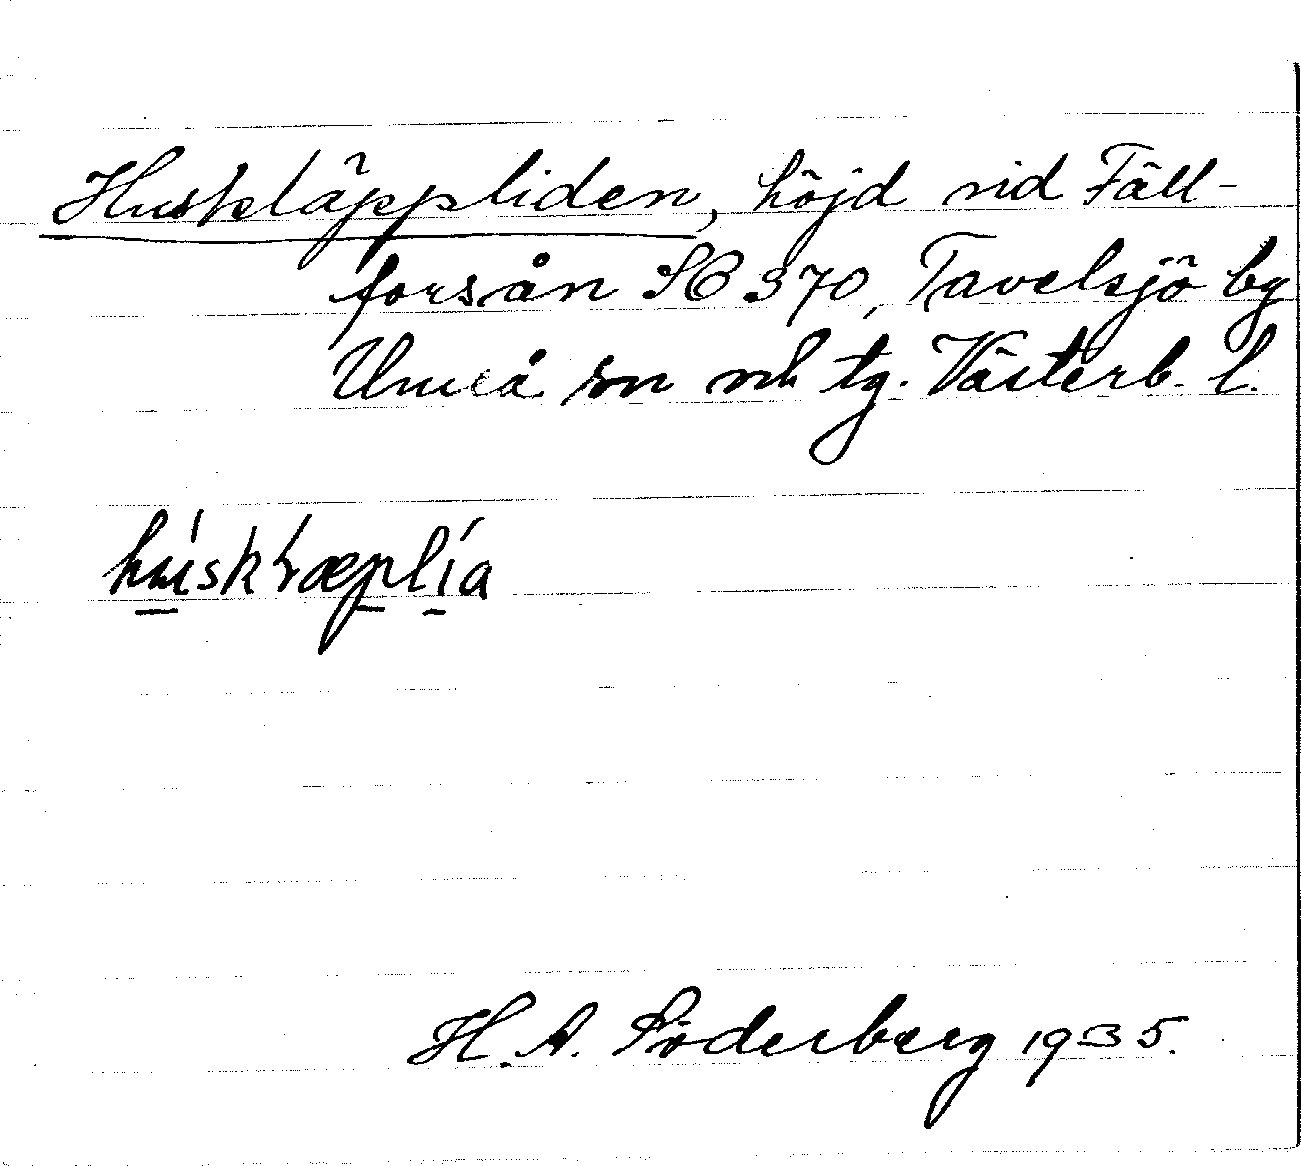 Huskläppliden, höjd vid Fäll-
forsån SO 370, Tavelsjö by
Umeå sn mk tg. Västerb. l.
húskłæplía
H. A. Söderberg 1935.